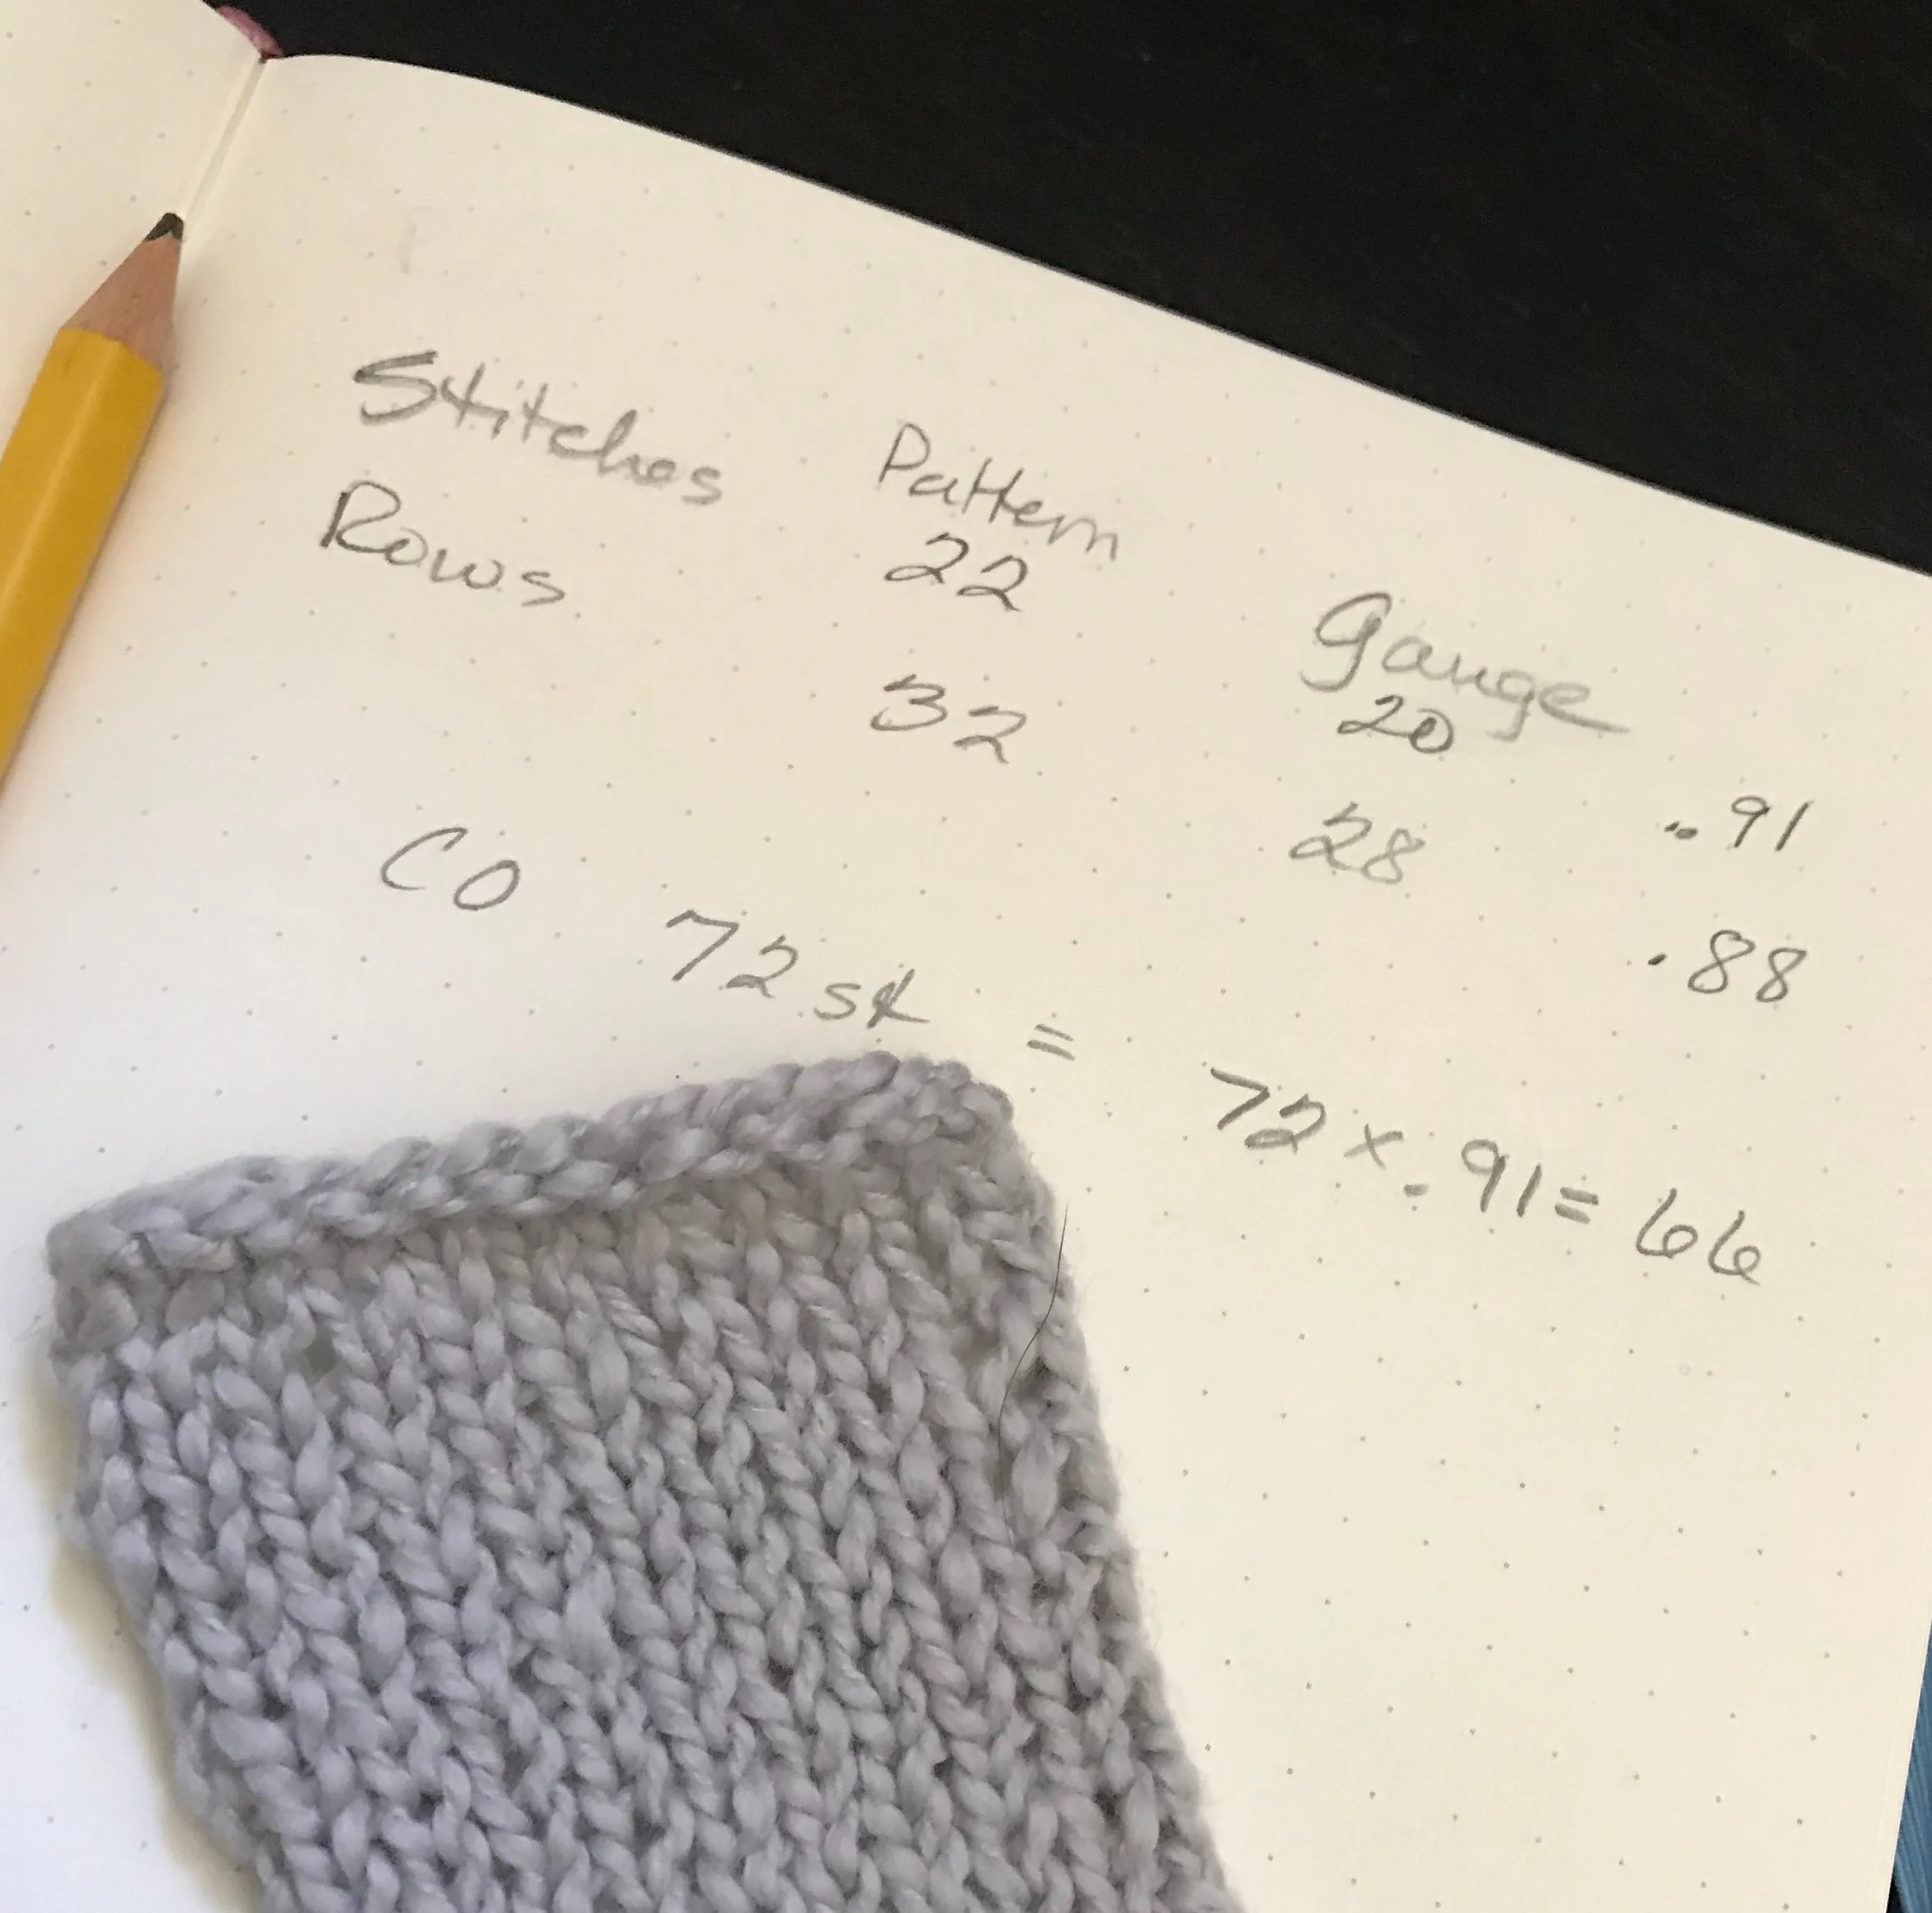 Stitches Pattern Gauge
Rows 22 20 .91
32 28 .88
CO 72 st = 72 x .91 = 66